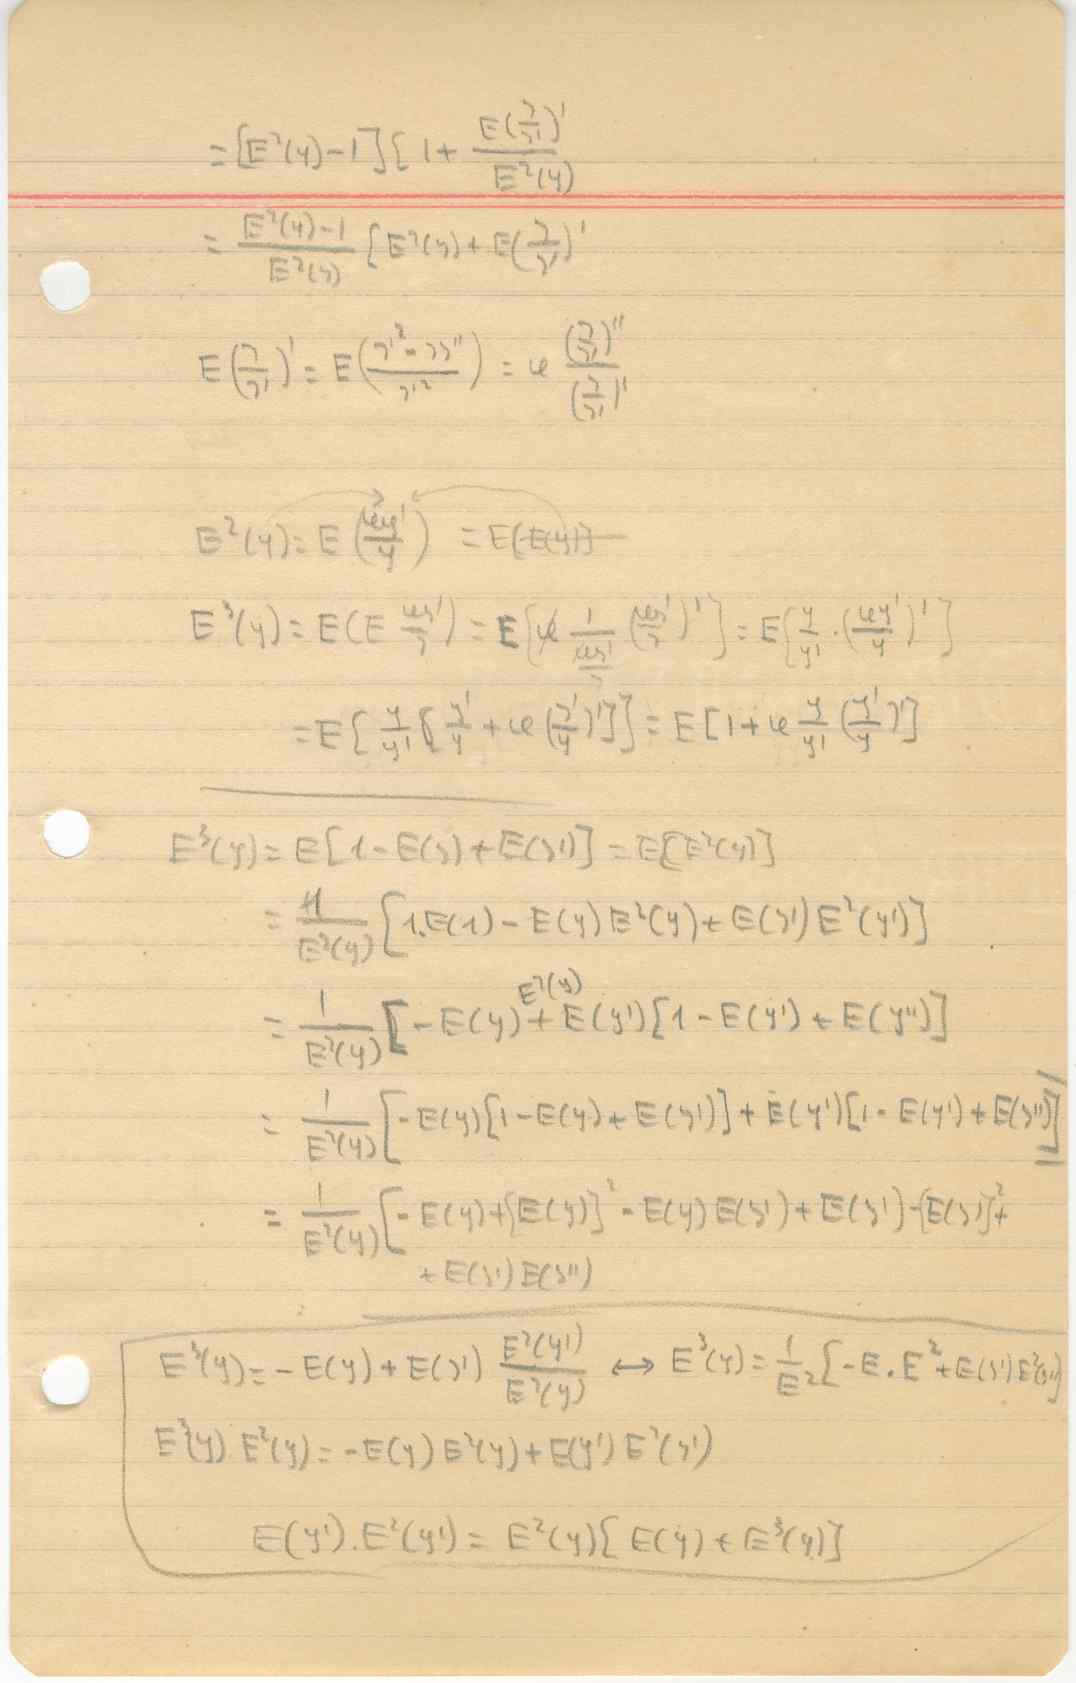 = [E²(y) - 1] [ 1 + E(y/y')' / E²(y)
= (E²(y) - 1)/E²(y) [ E²(y) + E(y/y')'
E(y/y')' = E( (y'² - yy'')/y'² ) = x (y/y')'' / (y/y')'
E²(y) = E( xy'/y ) = E[E(y)]
E³(y) = E( E xy'/y ) = E[ x 1/(xy'/y) (xy'/y)' ] = E[ y/y' · (xy'/y)' ]
= E[ y/y' [ y'/y + x (y'/y)' ] ] = E[ 1 + x y/y' (y'/y)' ]
E³(y) = E[ 1 - E(y) + E(y') ] = E[E²(y)]
= 1/E²(y) [ 1.E(1) - E(y) E²(y) + E(y') E²(y') ]
E²(y)
= 1/E²(y) [ - E(y) + E(y') [ 1 - E(y') + E(y'') ]
= 1/E²(y) [ - E(y) [ 1 - E(y) + E(y') ] + E(y') [ 1 - E(y') + E(y'') ]
= 1/E²(y) [ - E(y) + [E(y)]² - E(y) E(y') + E(y') - [E(y')]² +
+ E(y') E(y'')
E³(y) = - E(y) + E(y') E²(y')/E²(y) ↔ E³(y) = 1/E² [ - E . E² + E(y') E²(y') ]
E³(y) . E²(y) = - E(y) E²(y) + E(y') E²(y')
E(y') . E²(y') = E²(y) [ E(y) + E³(y) ]